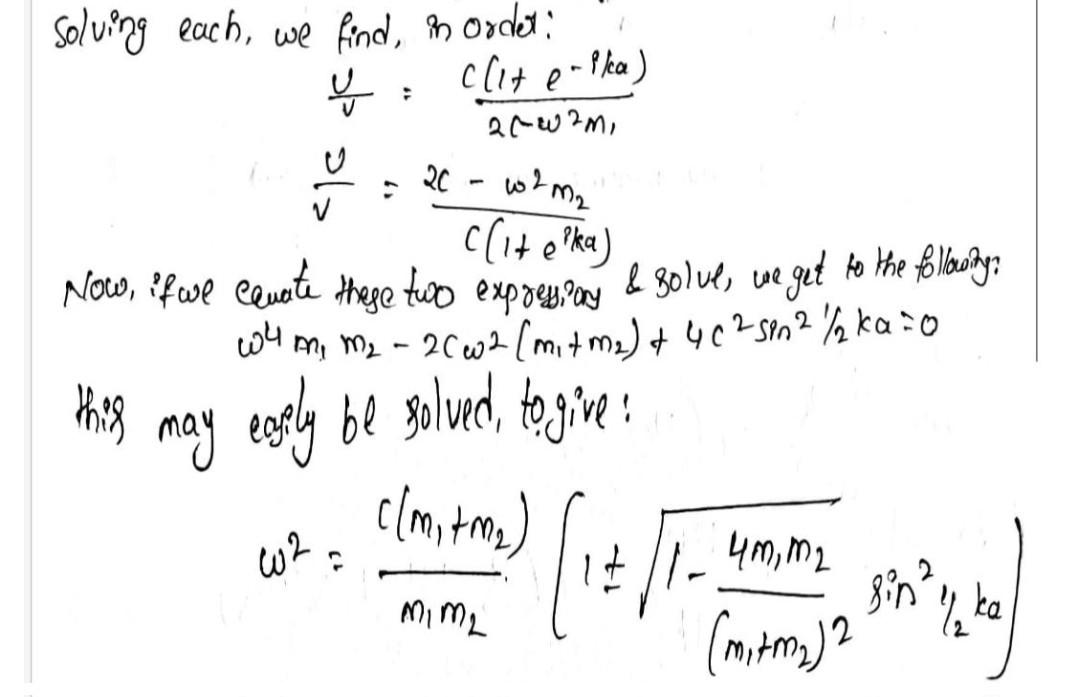 Solving each, we find, in order:
U/V = C(1+ e^-ika) / 2C-ω²m₁
U/V = 2C - ω²m₂ / C(1+ e^ika)
Now, if we equate these two expressions & solve, we get to the following:
ω⁴ m₁ m₂ - 2Cω² (m₁+m₂) + 4C² sin² 1/2 ka = 0
this may easily be solved, to give:
ω² = C(m₁+m₂) / m₁m₂ [1 ± √1 - 4m₁m₂ / (m₁+m₂)² sin² 1/2 ka]